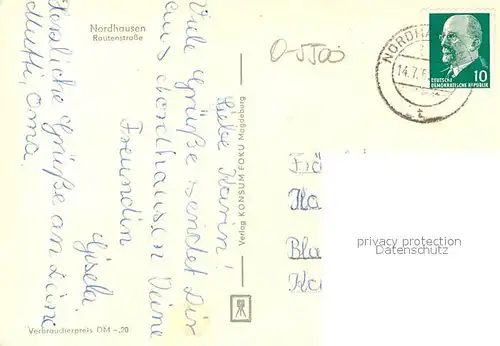 Nordhausen
Rautenstraße
Liebe Karin!
Viele Grüße sendet Dir
aus Nordhausen Deine
Freundin
Gisela.
Herzliche Grüße an Deine
Mutti, Oma.
Verbraucherpreis DM -,20
Verlag KONSUM FOKU Magdeburg
O-5500
NORDHA
14.7.6
DEUTSCHE
DEMOKRATISCHE REPUBLIK
10
Frä
Ka
Bla
privacy protection
Datenschutz